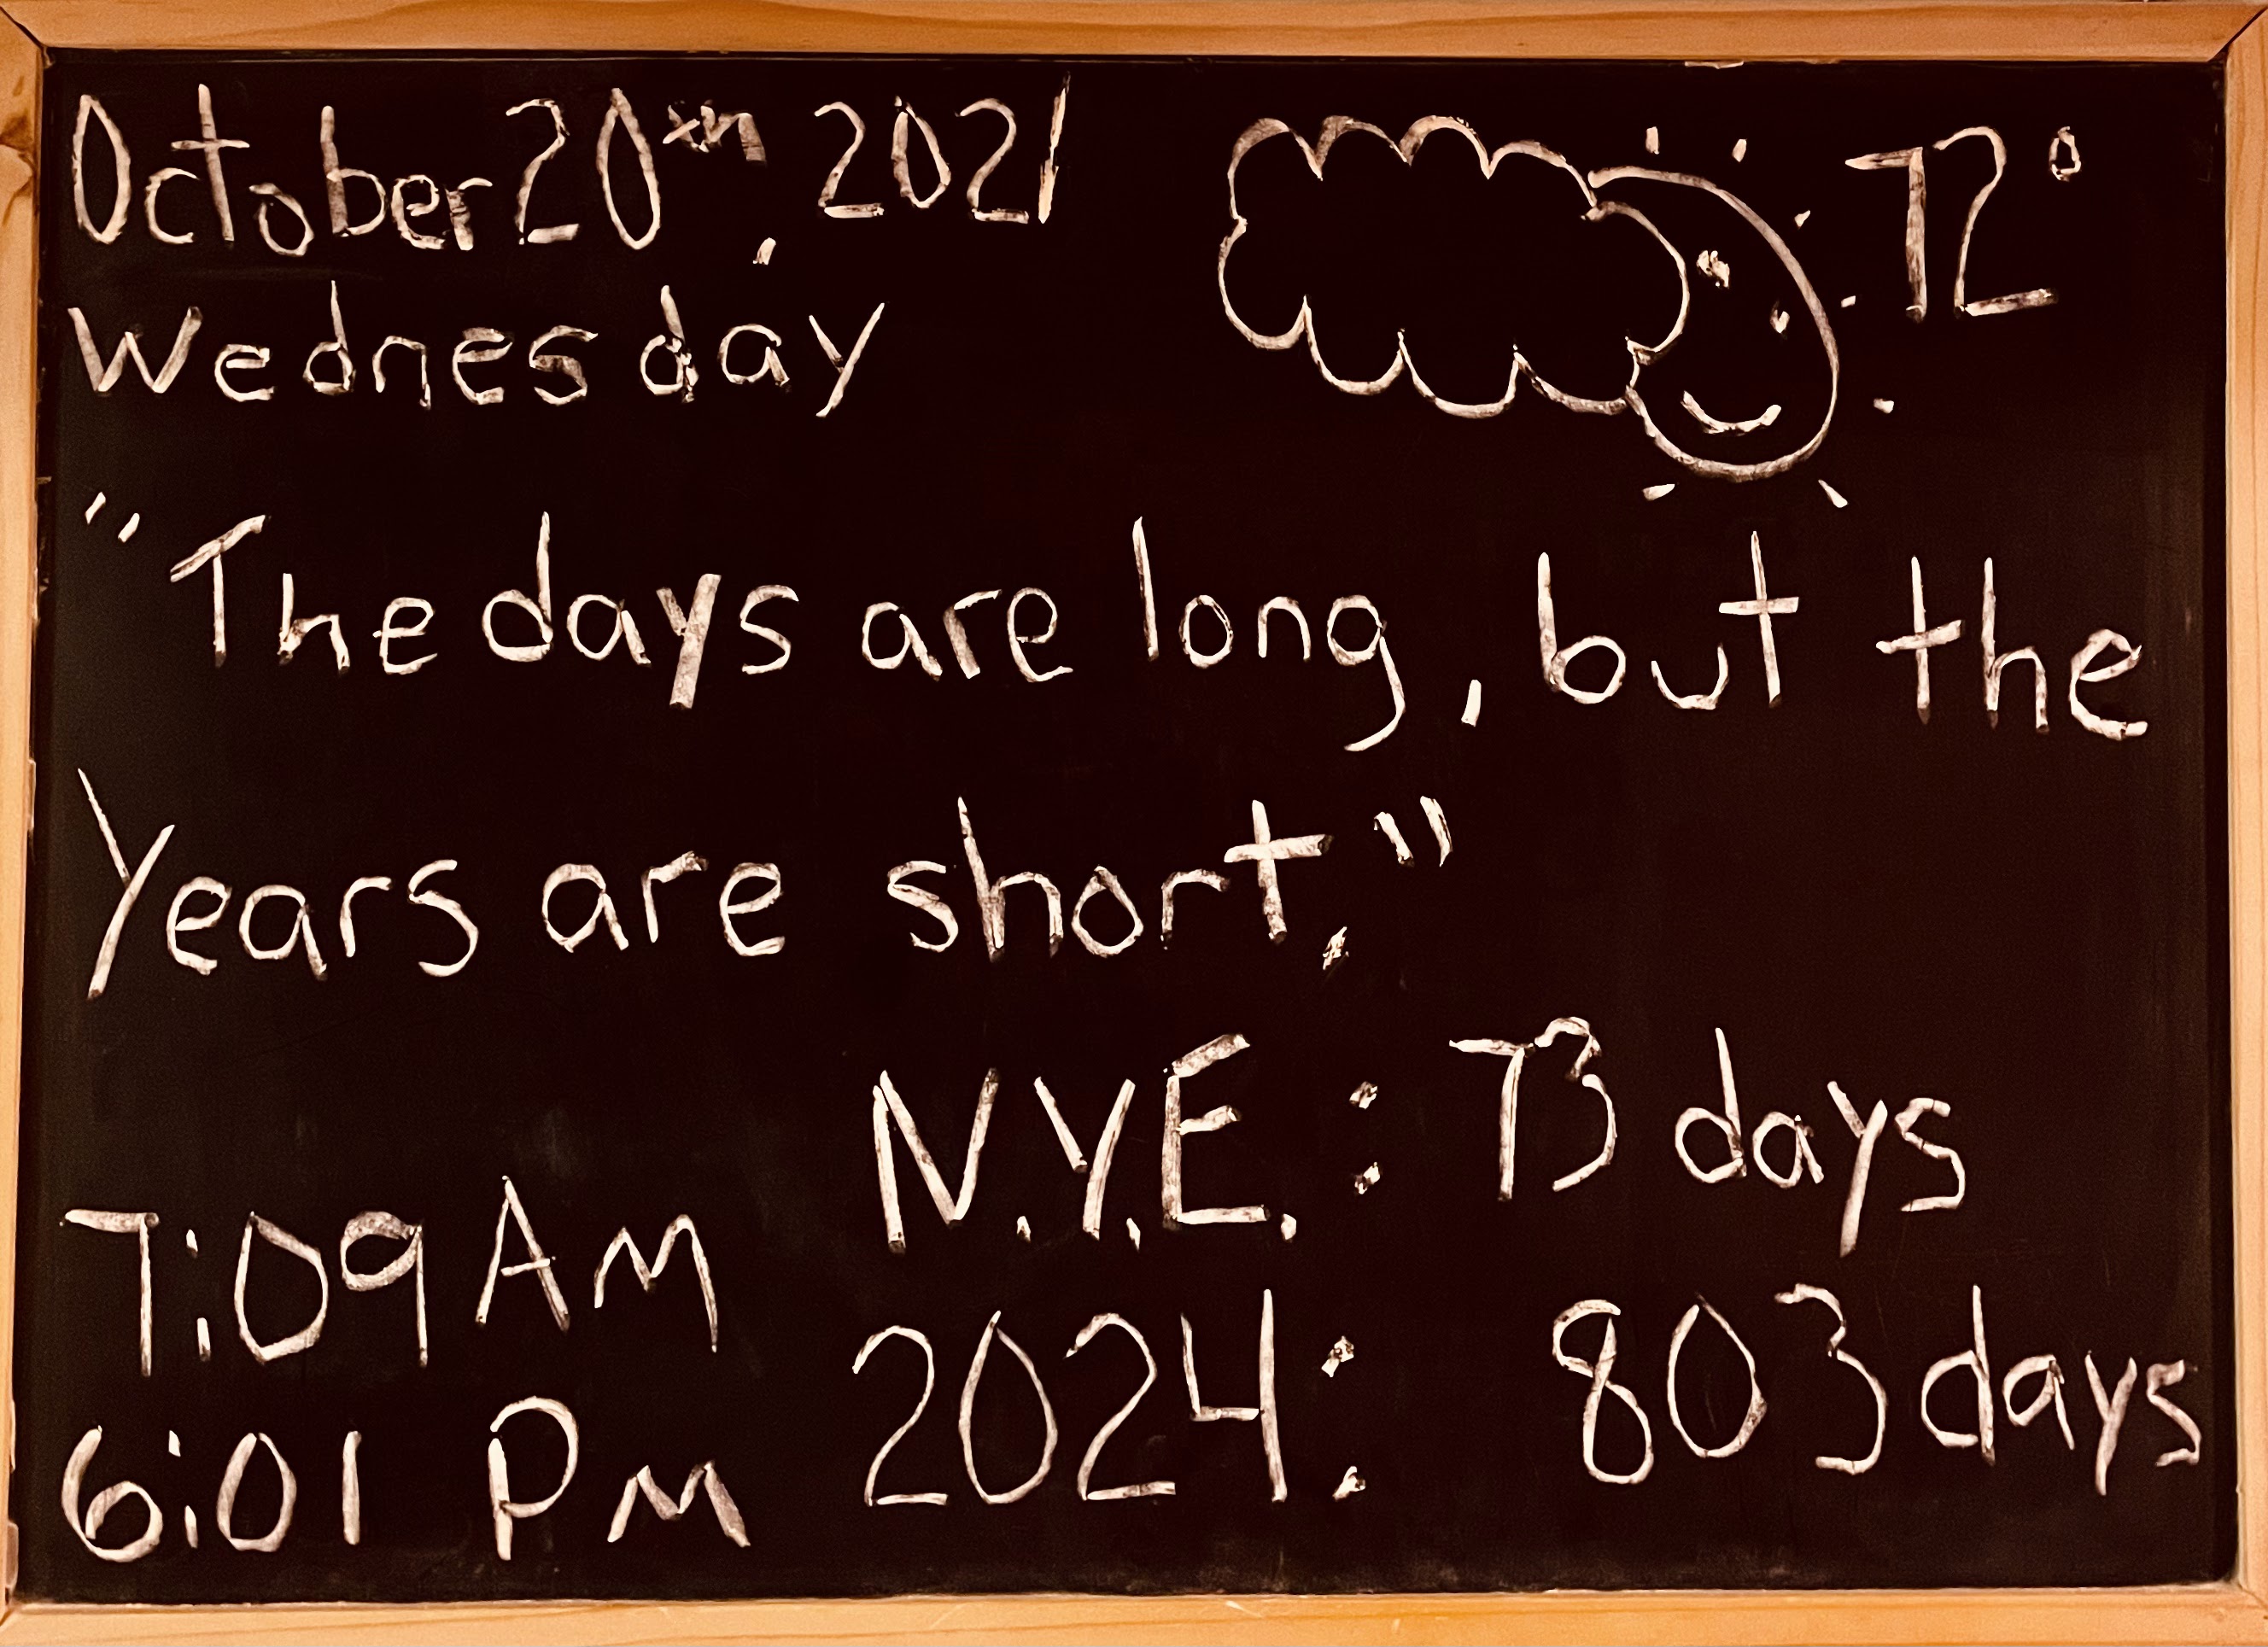 October 20th, 2021
72°
Wednesday
"The days are long, but the
years are short."
N.Y.E.: 73 days
7:09 AM
2024: 803 days
6:01 PM